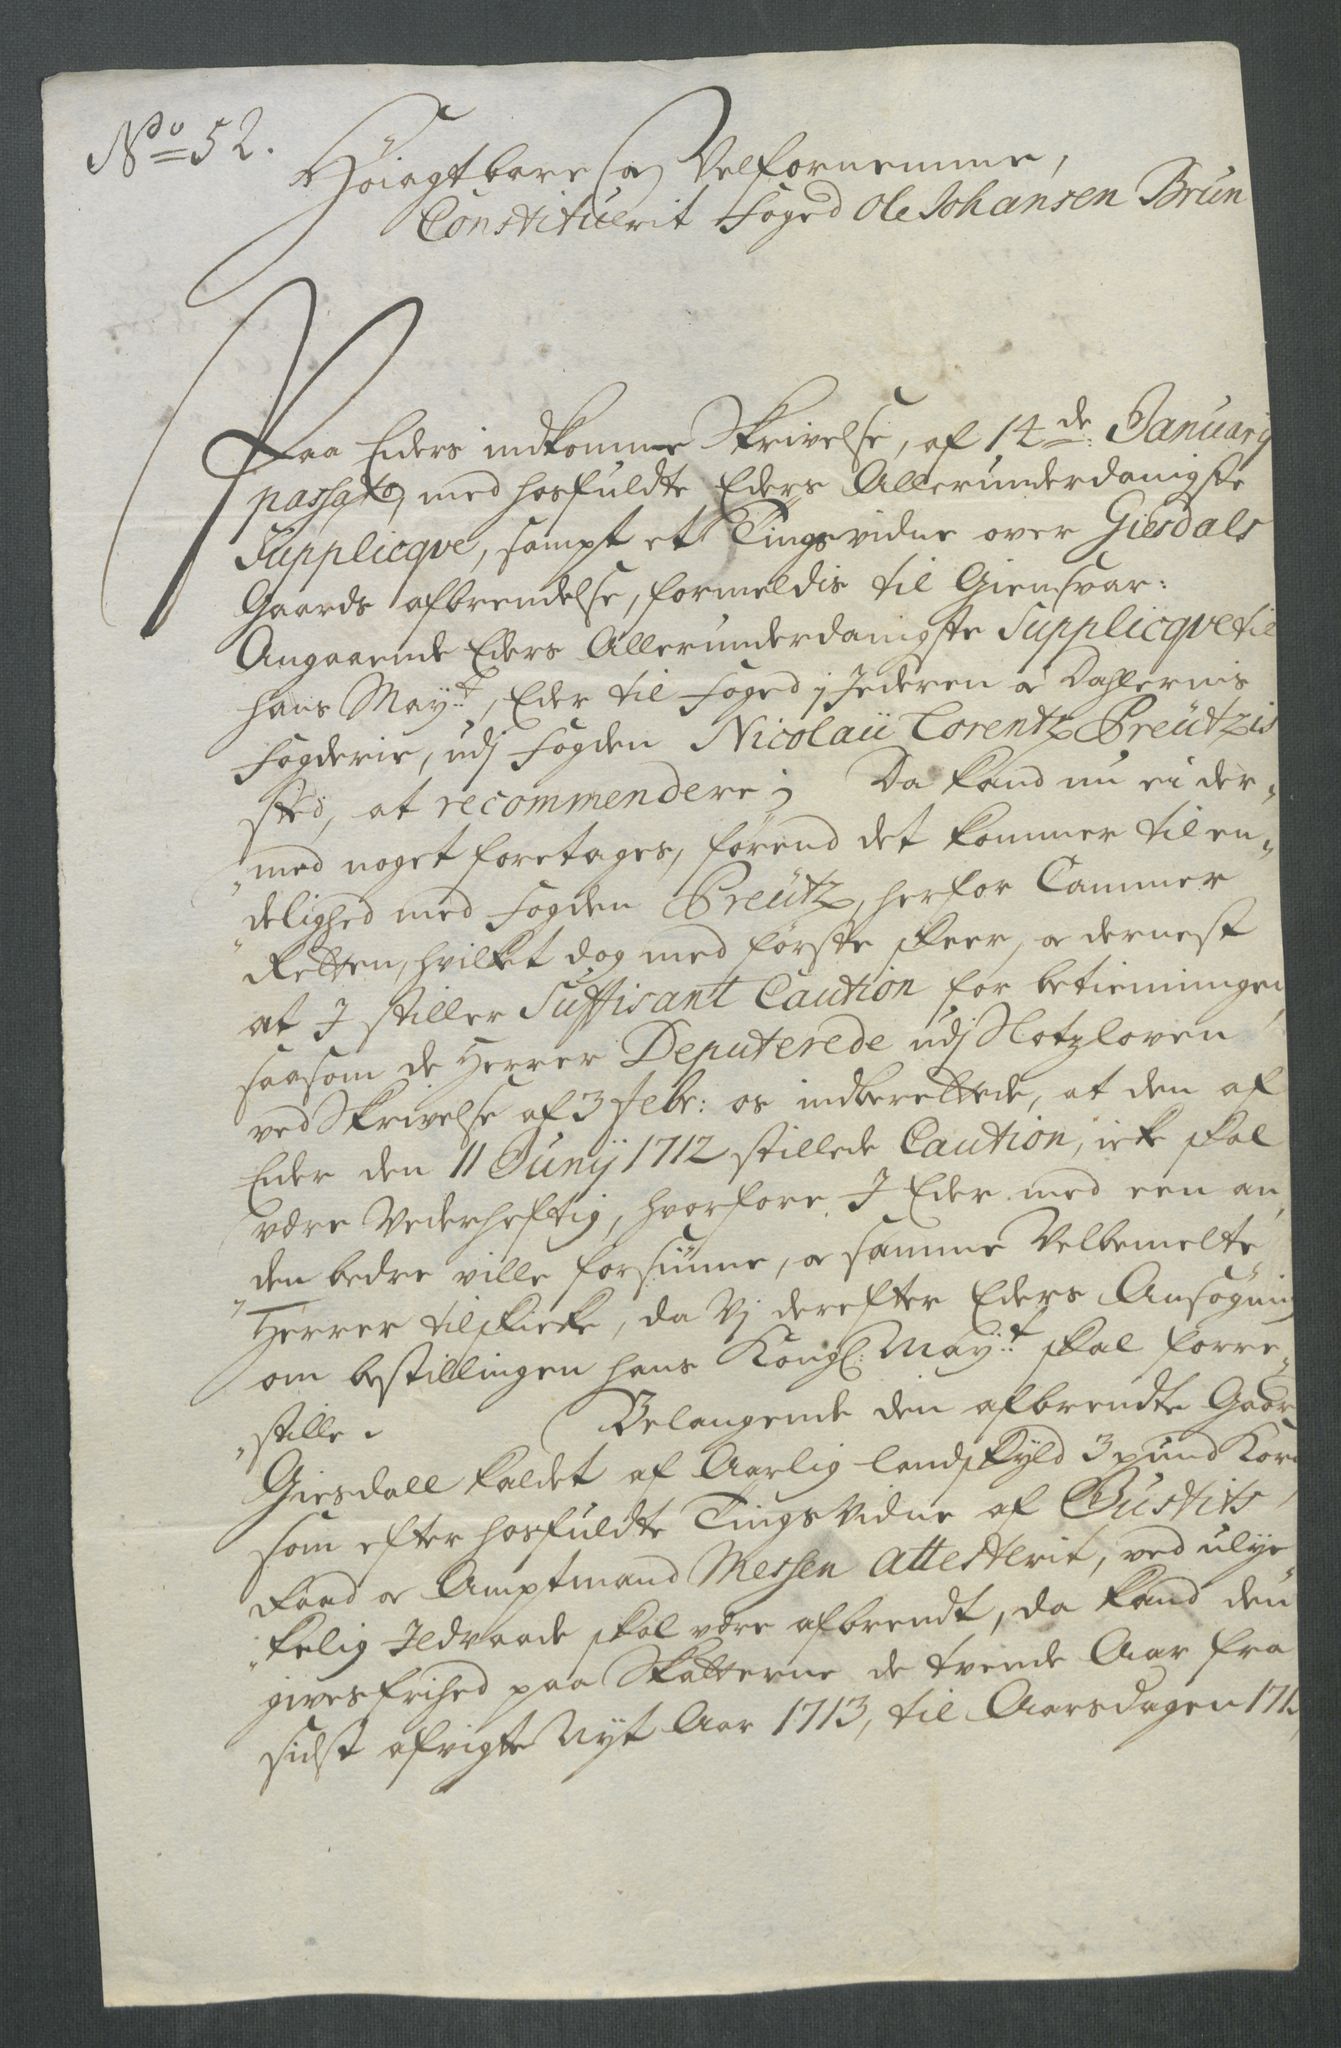 No 52.
Höiagtbare og Velfornemme,
Constituerit Foged Ole Johansen Brun
Paa Eders indkomne Skrivelse, af 14de: Januarij
passato, med hosfuldte Eders Allerunderdanigste
Supplicqve, sampt et Tingsvidne over Giesdals
Gaards afbrendelse, formeldis til Giensvar:
Angaaende Eders Allerunderdanigste Supplicqve til
hans Mayt:, Eder til Foged j Jederen og Dahlernis
Fogderie, udj Fogden Nicolaii Lorentz Preützis
sted, at recommendere; Da kand nu ei der-
med noget foretages, förend det kommer til en-
delighed med Fogden Preütz, herfor Cammer
Retten, hvilket dog med förste skeer, og dernest
at I stiller Suffisant Caution for betieningen,
saasom de Herrer Deputerede udj Slotzloven
ved Skrivelse af 3 Febr: os indberettede, at den af
Eder den 11 Junij 1712 stillede Caution, icke skal
være Vederheftig, hvorfore I Eder med een an-
den bedre ville forsiune, og samme Velbemelte
Herrer tilskicke, da Vj derefter Eders Ansögning
om bestillingen hans Kongl: Mayt: skal forre-
stille. Belangende den afbrendte Gaard
Giesdall kaldet af Aarlig landskyld 3 pund Korn
som efter hosfuldte Tings Vidne af Justits
Raad og Amptmand Messen attesterit, ved ulyc-
kelig Ildvaade skal være afbrendt, da kand den
gives frihed paa Skatterne de tvende Aar fra
sidst afvigte Nyt Aar 1713, til Aarsdagen